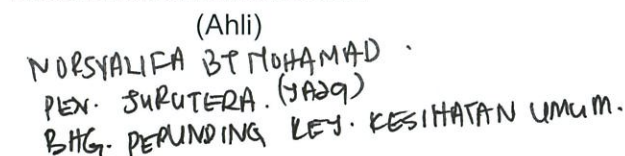 (Ahli)
NORSYALIFA BT MOHAMAD.
PEN. JURUTERA. (JA29)
BHG. PERUNDING KEJ. KESIHATAN UMUM.